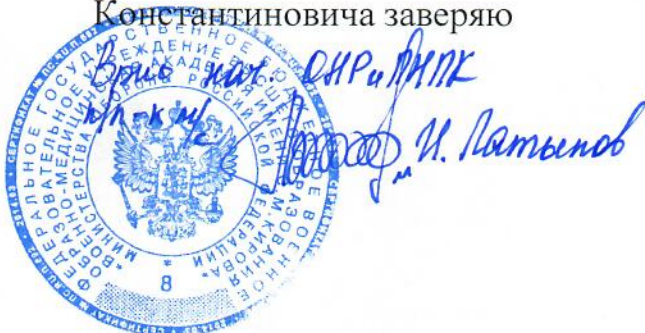 Константиновича заверяю
Врио нач. ОНР и ПНПК
п/п-к м/с
И. Латыпов
ФЕДЕРАЛЬНОЕ ГОСУДАРСТВЕННОЕ БЮДЖЕТНОЕ ВОЕННОЕ
ОБРАЗОВАТЕЛЬНОЕ УЧРЕЖДЕНИЕ ВЫСШЕГО ОБРАЗОВАНИЯ
"ВОЕННО-МЕДИЦИНСКАЯ АКАДЕМИЯ ИМЕНИ С.М.КИРОВА"
МИНИСТЕРСТВА ОБОРОНЫ РОССИЙСКОЙ ФЕДЕРАЦИИ
* 8